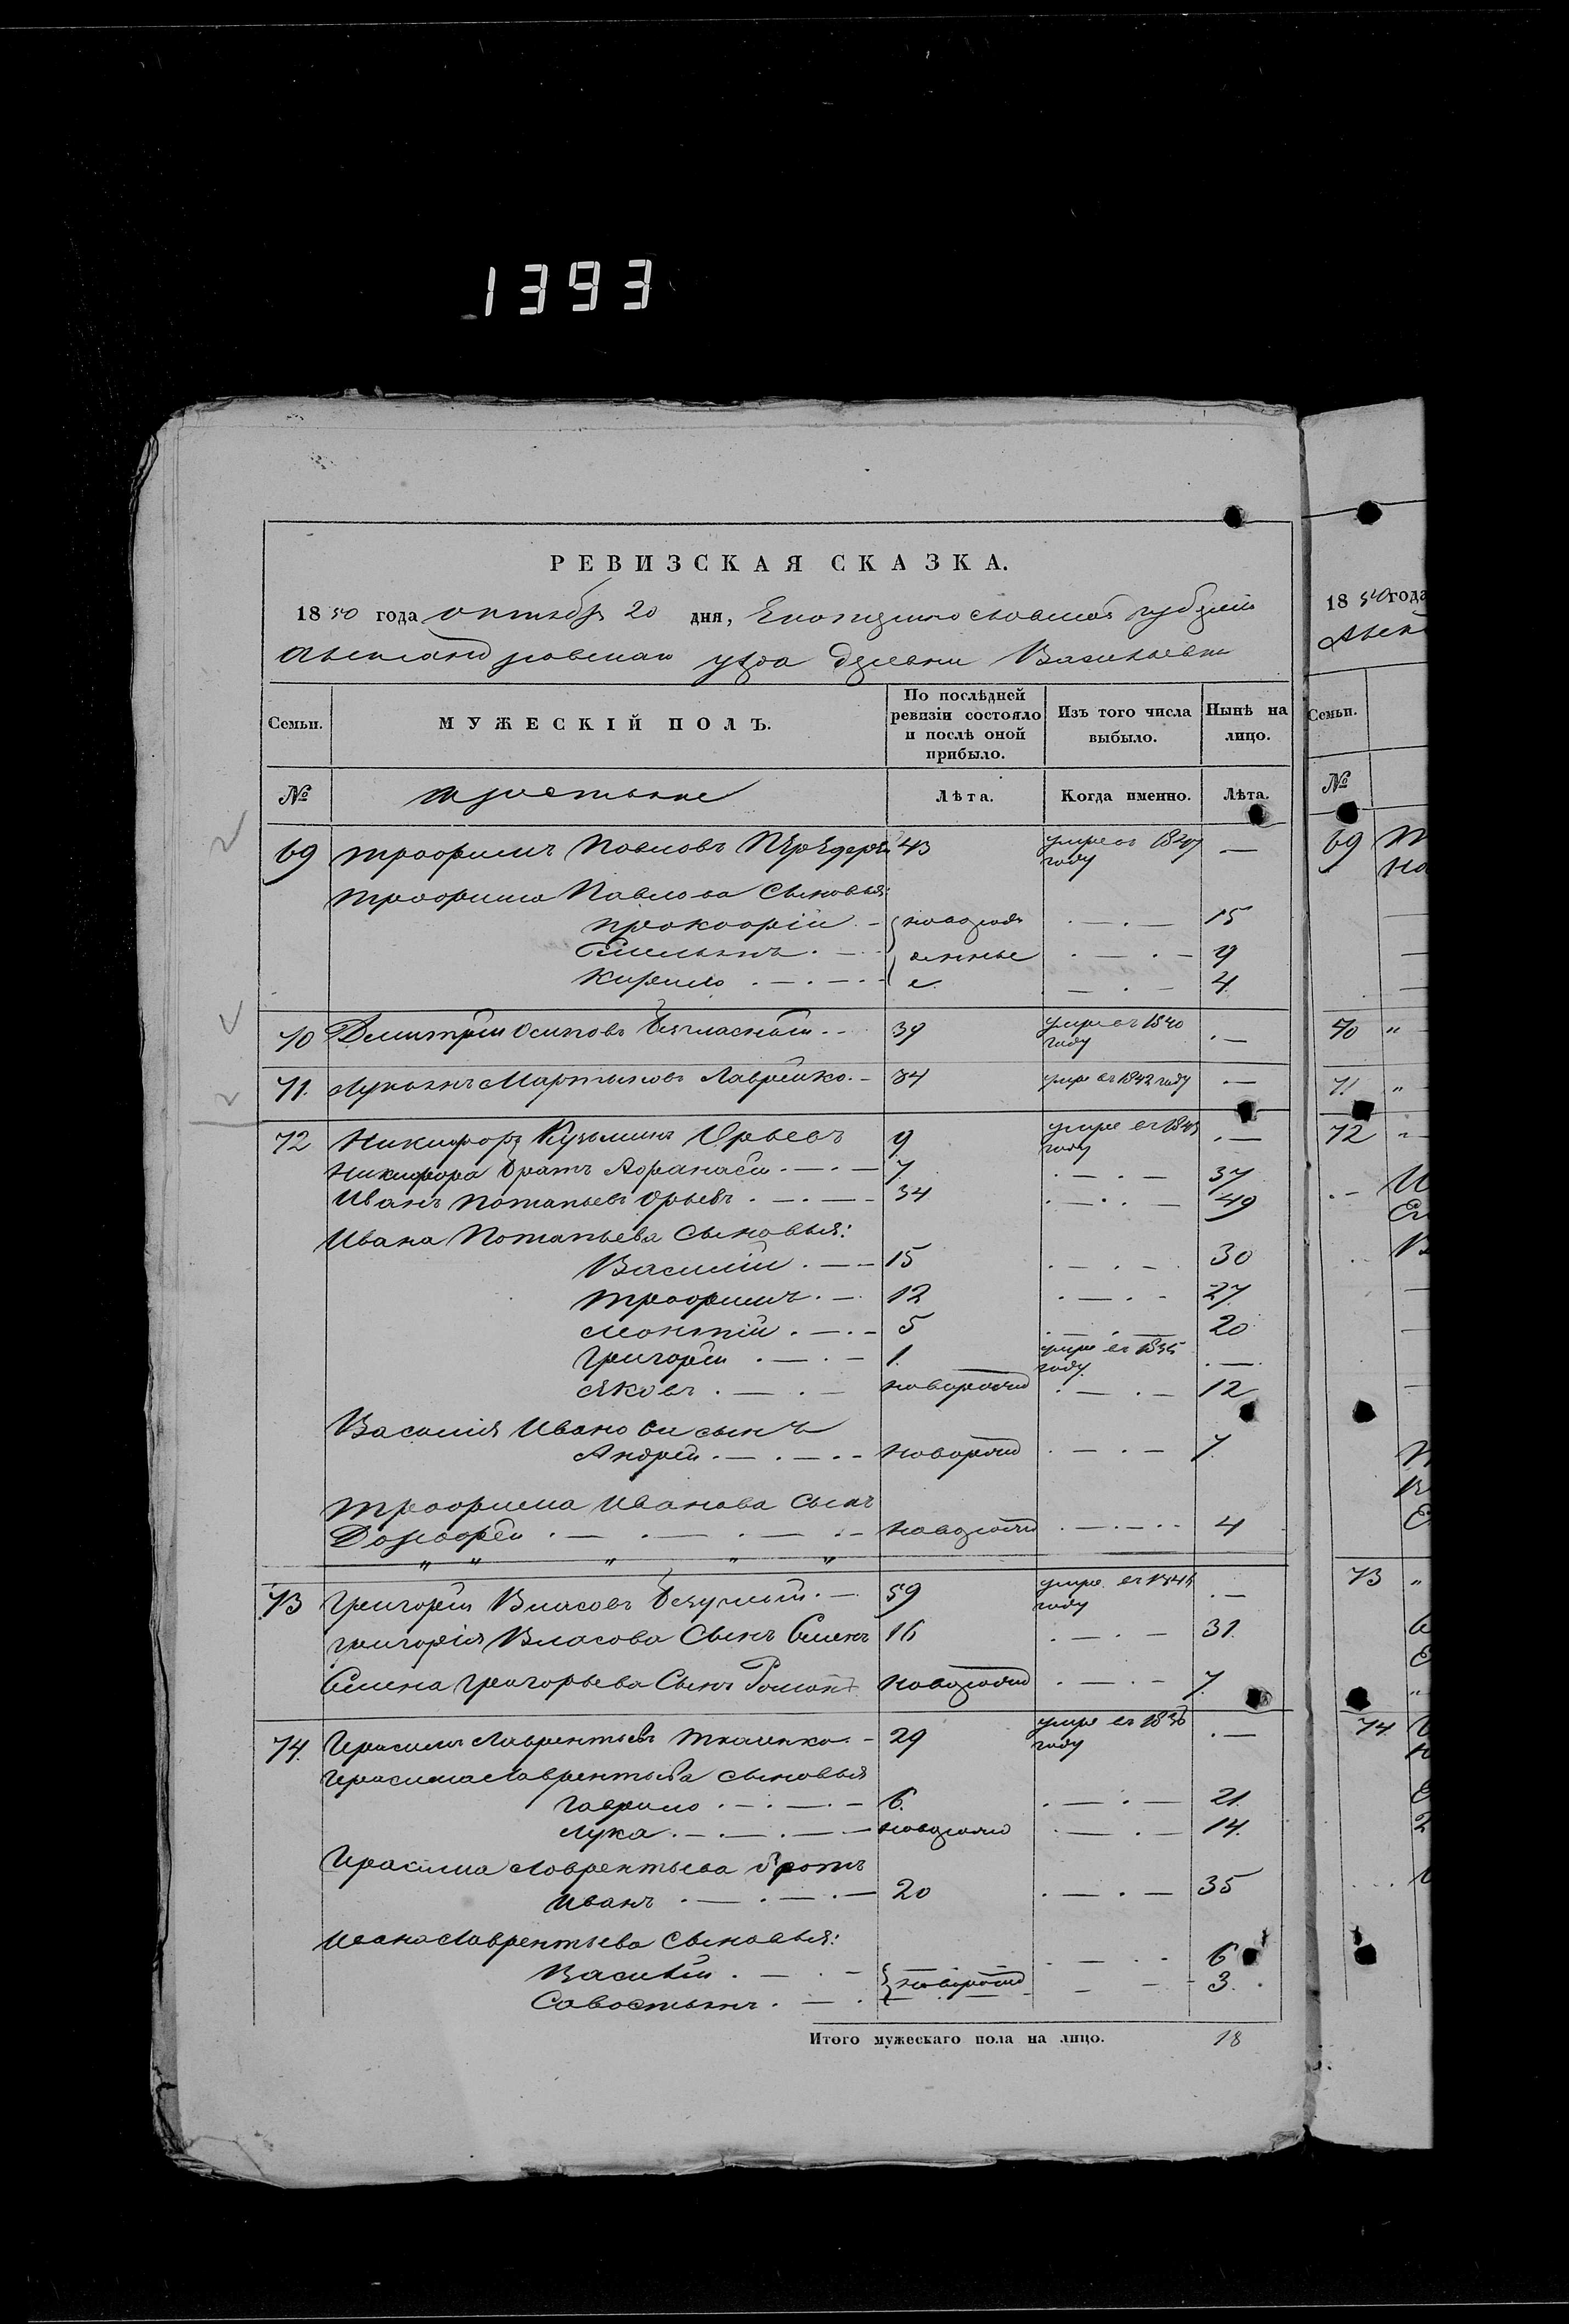 1393
РЕВИЗСКАЯ СКАЗКА.
1850 года октября 20 дня, Екатеринославской губернии
Александровскаго уезда деревни Васильевки
Семьи. МУЖЕСКІЙ ПОЛЪ. По послѣдней ревизіи состояло и послѣ оной прибыло. Изъ того числа выбыло. Нынѣ на лицо.
№ крестьяне Лѣта. Когда именно. Лѣта.
69 Трофимъ Павловъ 43 умре въ 1847 году —
Трофима Павлова сыновья:
Прокофій новорож 15
Емельянъ денные 9
Кирило е 4
70 Дмитрій Осиповъ 39 умре въ 1840 году —
71. Лукьянъ Мартыновъ Лаврейко 34 умре въ 1842 году —
72 Никифоръ Кузьминъ Юрьевъ 9 умре въ году —
Никифора братъ Афанасій 7 37
Иванъ Потапьевъ Юрьевъ 34 49
Ивана Потапьева сыновья:
Василій 15 30
Трофимъ 12 27
Леонтій 5 20
Григорій 1. умре въ 1835 году —
Яковъ новорожд 12
Василія Иванова сынъ
Андрей новорожд 7.
Трофима Иванова сынъ
Дорофей новорожд 4
73 Григорій Власовъ 59 умре въ году —
Григорія Власова сынъ Семенъ 16 31.
Семена Григорьева сынъ Романъ новорожд 7.
74. Герасимъ Лаврентьевъ Ткаченко 29 умре въ 1836 году —
Герасима Лаврентьева сыновья
Гаврило 6. 21.
Лука новорожд 14.
Герасима Лаврентьева братъ
Иванъ 20 35
Ивана Лаврентьева сыновья:
Василій новорожд 6
Савостьянъ 3.
Итого мужескаго пола на лицо. 18
1850 года
Семьи.
№
69
70 "
71. "
72
73 "
74